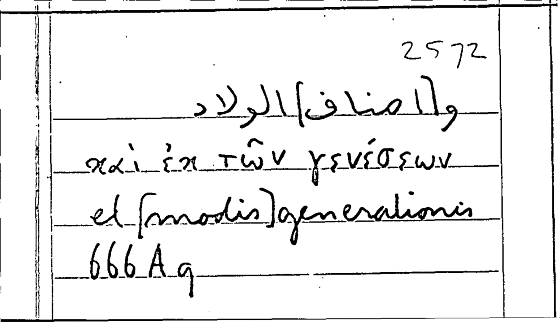 2572
و[اصناف] الولاد
καὶ ἐκ τῶν γενέσεων
et [modis] generationis
666 A 9